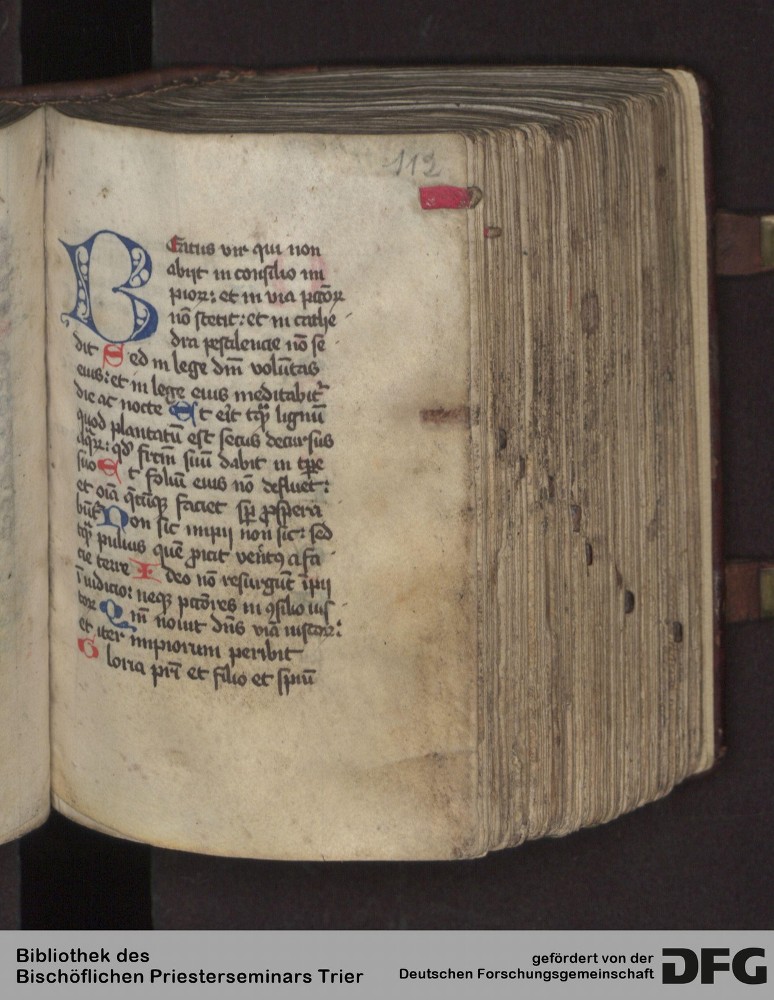 112
Beatus vir qui non
abijt in consilio im
pioꝝ: et in via pctōꝝ
nō stetit: et in cathe
dra pestilencie nō se
dit Sed in lege dm̄ volūtas
eius: et in lege eius meditabit᷑
die ac nocte Et erit tāqꝫ lignū
quod plantatū est secus decursus
aqꝝ: qd̓ fructū suū dabit in tꝑe
suo Et foliū eius nō defluet:
et oīa q̄cūqꝫ faciet sꝑ ꝓspera
būt᷑ Non sic impij non sic: sed
tāqꝫ puluis quē ꝓicit vent᷒ a fa
cie terre Ideo nō resurgūt īpij
ī iudicio: neqꝫ pctōres in ꝯsilio ius
toꝝ Qm̄ nouit dn̄s viā iustoꝝ:
et iter impiorum peribit
Gloria pri̅ et filio et spūi
Bibliothek des
Bischöflichen Priesterseminars Trier
gefördert von der
Deutschen Forschungsgemeinschaft
DFG